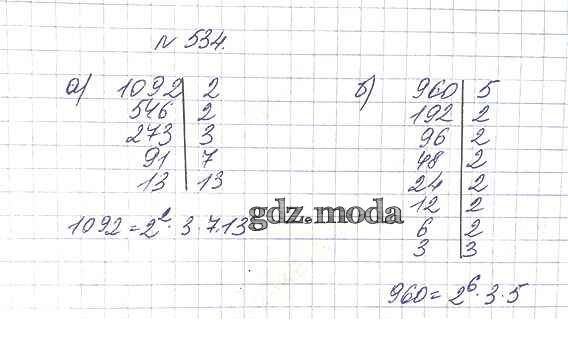 № 534.
а) 1092 | 2
546 | 2
273 | 3
91 | 7
13 | 13
1092 = 2² · 3 · 7 · 13
б) 960 | 5
192 | 2
96 | 2
48 | 2
24 | 2
12 | 2
6 | 2
3 | 3
960 = 2⁶ · 3 · 5
gdz.moda